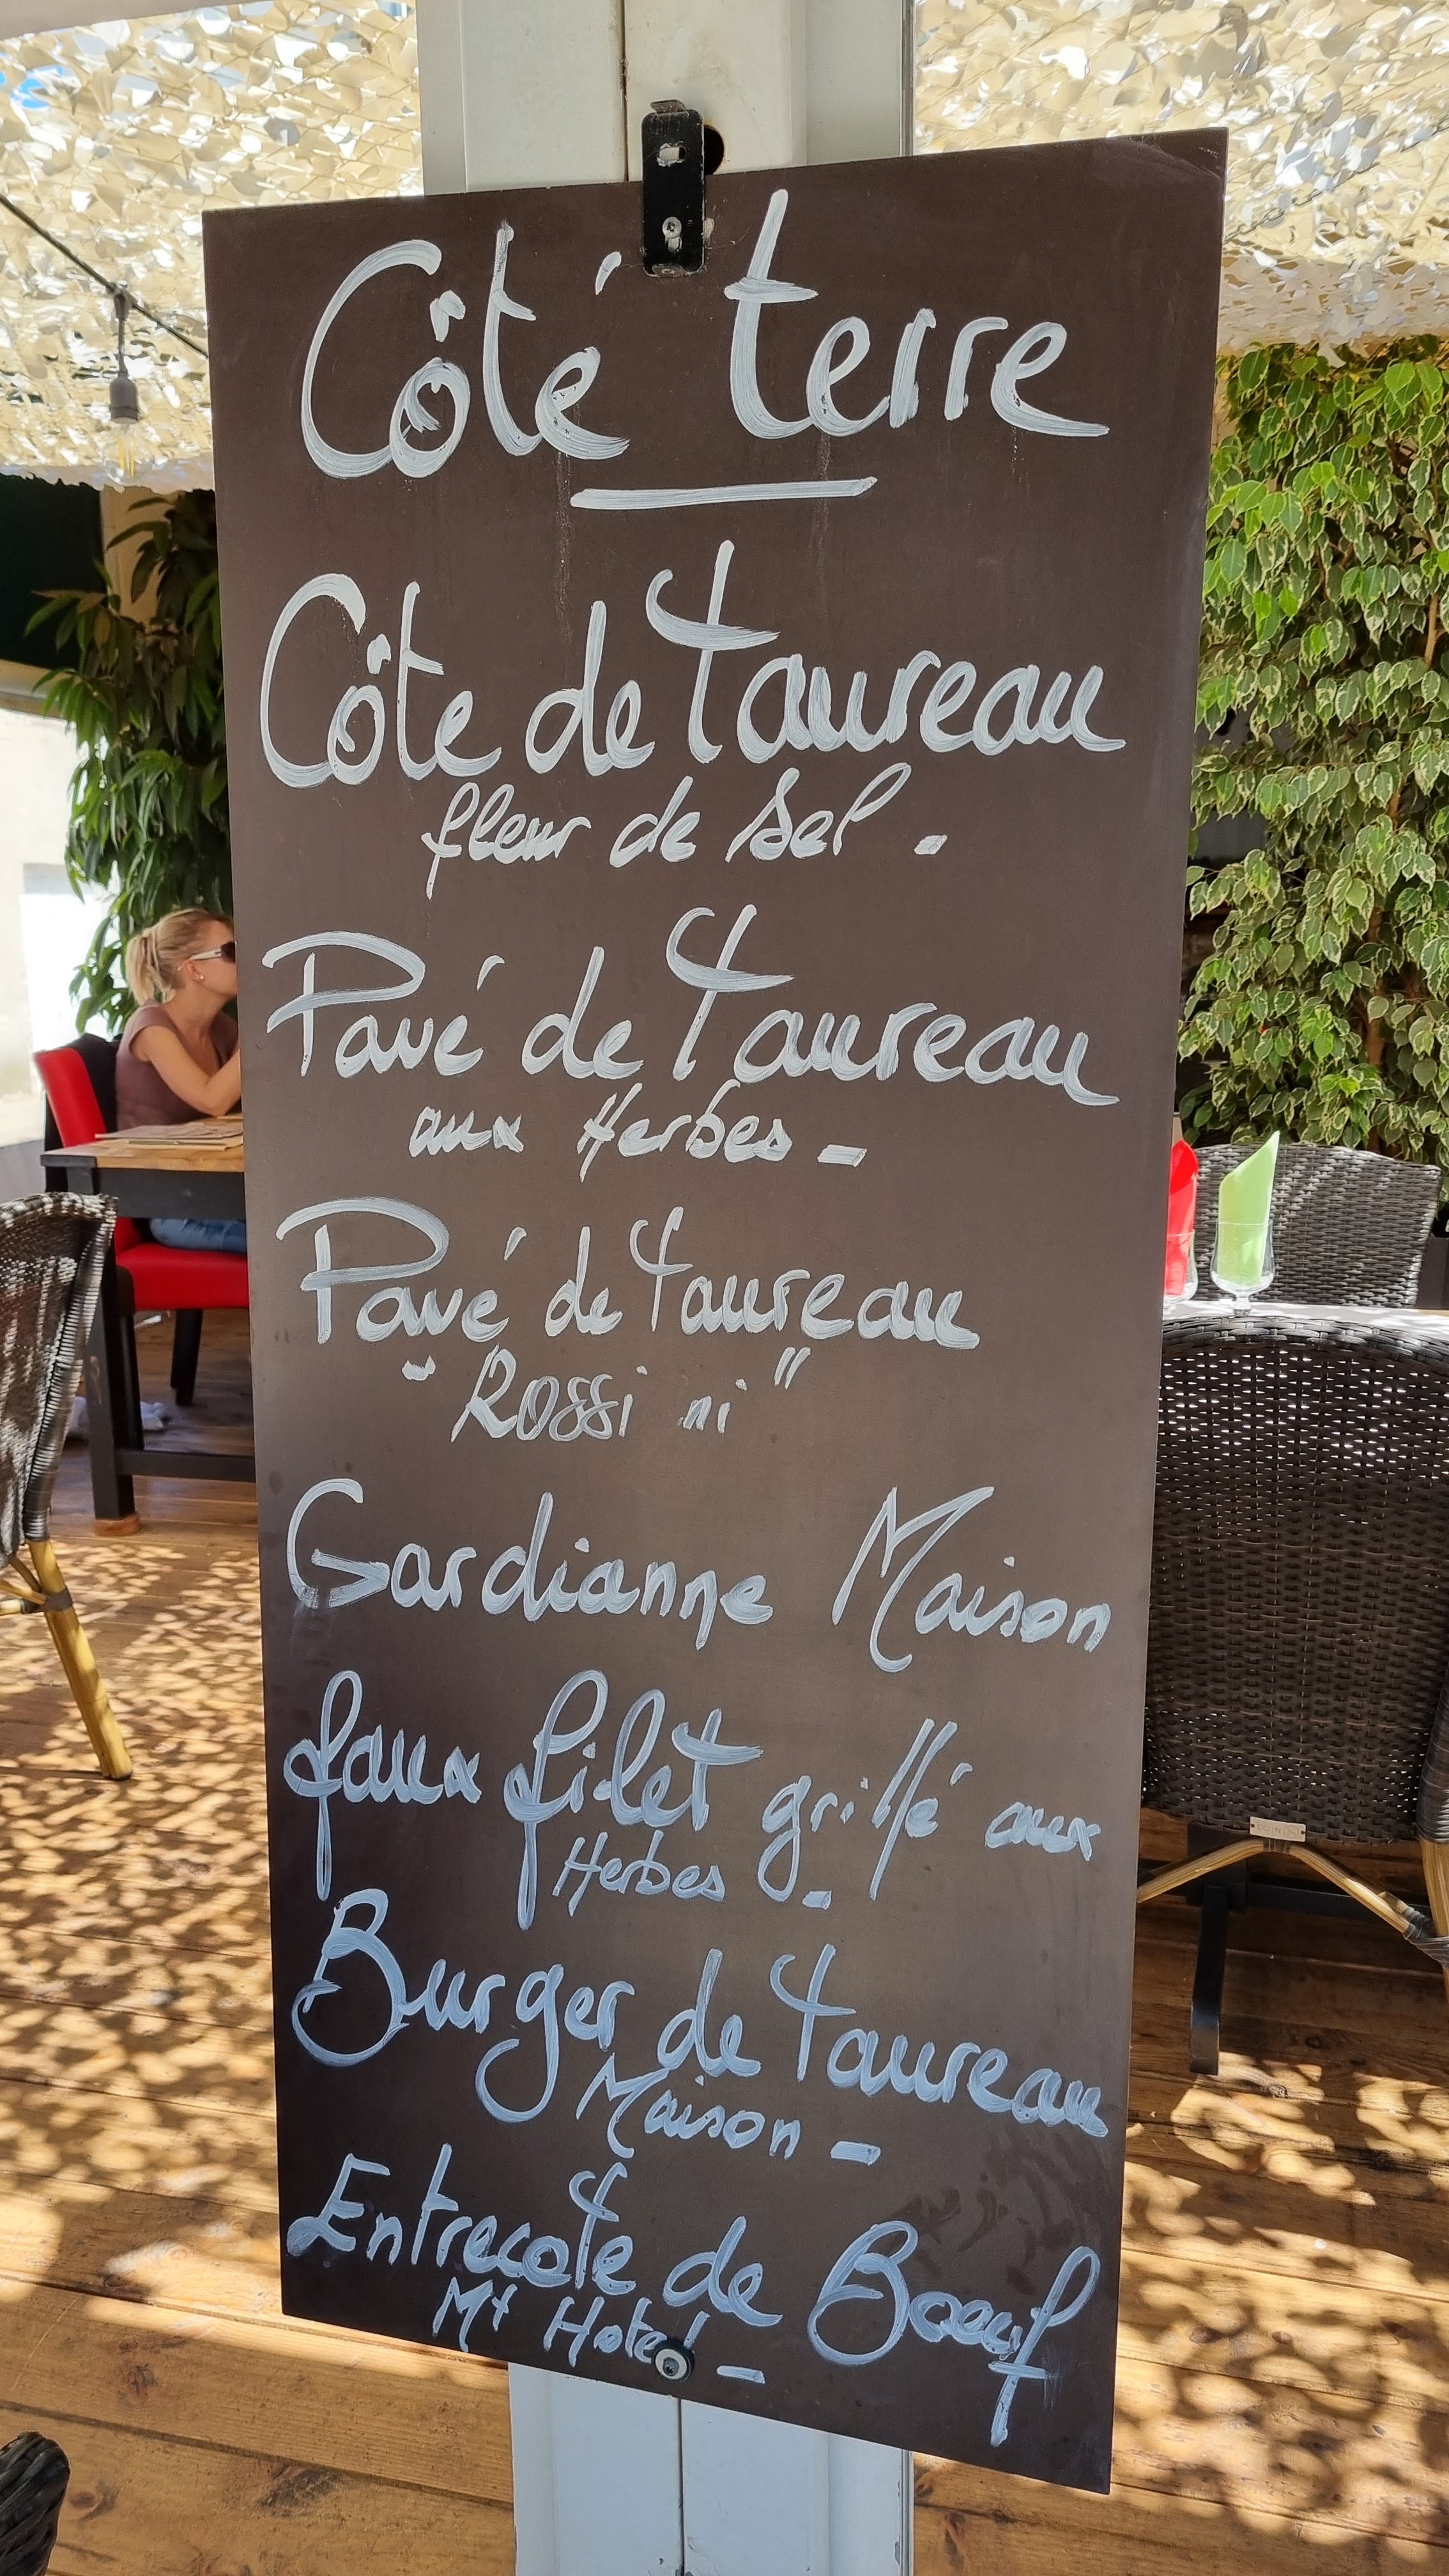 Côté terre
Côte de Taureau
fleur de sel.
Pavé de Taureau
aux Herbes -
Pavé de Taureau
"Rossini"
Gardianne Maison
faux filet grillé aux
Herbes -
Burger de Taureau
Maison -
Entrecote de Boeuf
Mt Hotel -